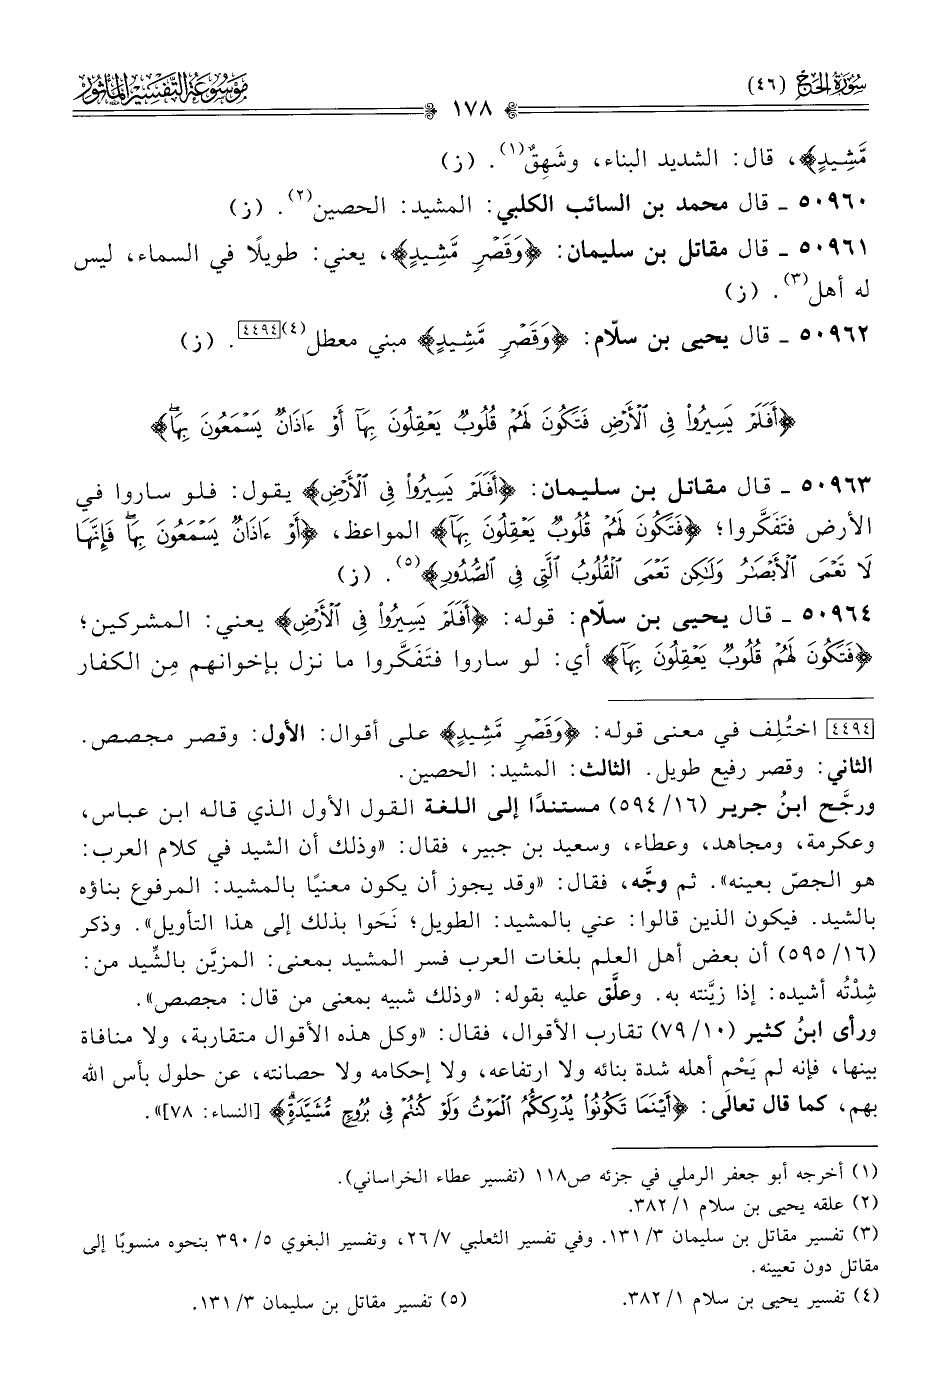 سورة الحج (٤٦)
١٧٨
موسوعة التفسير المأثور
مَّشِيدٍ﴾، قال: الشديد البناء، وشَهِقٌ(١). (ز)
٥٠٩٦٠ ـ قال محمد بن السائب الكلبي: المشيد: الحصين(٢). (ز)
٥٠٩٦١ ـ قال مقاتل بن سليمان: ﴿وَقَصۡرٍ مَّشِيدٍ﴾، يعني: طويلًا في السماء، ليس
له أهل(٣). (ز)
٥٠٩٦٢ ـ قال يحيى بن سلّام: ﴿وَقَصۡرٍ مَّشِيدٍ﴾ مبني معطل(٤)[٤٤٩٤]. (ز)
﴿أَفَلَمۡ يَسِيرُواْ فِي ٱلۡأَرۡضِ فَتَكُونَ لَهُمۡ قُلُوبٞ يَعۡقِلُونَ بِهَآ أَوۡ ءَاذَانٞ يَسۡمَعُونَ بِهَاۖ﴾
٥٠٩٦٣ ـ قال مقاتل بن سليمان: ﴿أَفَلَمۡ يَسِيرُواْ فِي ٱلۡأَرۡضِ﴾ يقول: فلو ساروا في
الأرض فتَفَكَّروا؛ ﴿فَتَكُونَ لَهُمۡ قُلُوبٞ يَعۡقِلُونَ بِهَآ﴾ المواعظ، ﴿أَوۡ ءَاذَانٞ يَسۡمَعُونَ بِهَاۖ فَإِنَّهَا
لَا تَعۡمَى ٱلۡأَبۡصَٰرُ وَلَٰكِن تَعۡمَى ٱلۡقُلُوبُ ٱلَّتِي فِي ٱلصُّدُورِ﴾(٥). (ز)
٥٠٩٦٤ ـ قال يحيى بن سلّام: قوله: ﴿أَفَلَمۡ يَسِيرُواْ فِي ٱلۡأَرۡضِ﴾ يعني: المشركين؛
﴿فَتَكُونَ لَهُمۡ قُلُوبٞ يَعۡقِلُونَ بِهَآ﴾ أي: لو ساروا فتَفَكَّروا ما نزل بإخوانهم مِن الكفار
[٤٤٩٤] اختُلِف في معنى قوله: ﴿وَقَصۡرٍ مَّشِيدٍ﴾ على أقوال: الأول: وقصر مجصص.
الثاني: وقصر رفيع طويل. الثالث: المشيد: الحصين.
ورجَّح ابنُ جرير (١٦/ ٥٩٤) مستندًا إلى اللغة القول الأول الذي قاله ابن عباس،
وعكرمة، ومجاهد، وعطاء، وسعيد بن جبير، فقال: «وذلك أن الشيد في كلام العرب:
هو الجصّ بعينه». ثم وجَّه، فقال: «وقد يجوز أن يكون معنيًا بالمشيد: المرفوع بناؤه
بالشيد. فيكون الذين قالوا: عني بالمشيد: الطويل؛ نَحَوا بذلك إلى هذا التأويل». وذكر
(١٦/ ٥٩٥) أن بعض أهل العلم بلغات العرب فسر المشيد بمعنى: المزيَّن بالشِّيد من:
شِدْتُه أشيده: إذا زيَّنته به. وعلَّق عليه بقوله: «وذلك شبيه بمعنى من قال: مجصص».
ورأى ابنُ كثير (١٠/ ٧٩) تقارب الأقوال، فقال: «وكل هذه الأقوال متقاربة، ولا منافاة
بينها، فإنه لم يَحْمِ أهله شدة بنائه ولا ارتفاعه، ولا إحكامه ولا حصانته، عن حلول بأس الله
بهم، كما قال تعالَى: ﴿أَيۡنَمَا تَكُونُواْ يُدۡرِككُّمُ ٱلۡمَوۡتُ وَلَوۡ كُنتُمۡ فِي بُرُوجٖ مُّشَيَّدَةٖۗ﴾ [النساء: ٧٨]».
(١) أخرجه أبو جعفر الرملي في جزئه ص١١٨ (تفسير عطاء الخراساني).
(٢) علقه يحيى بن سلام ١/ ٣٨٢.
(٣) تفسير مقاتل بن سليمان ٣/ ١٣١. وفي تفسير الثعلبي ٧/ ٢٦، وتفسير البغوي ٥/ ٣٩٠ بنحوه منسوبًا إلى
مقاتل دون تعيينه.
(٤) تفسير يحيى بن سلام ١/ ٣٨٢.
(٥) تفسير مقاتل بن سليمان ٣/ ١٣١.